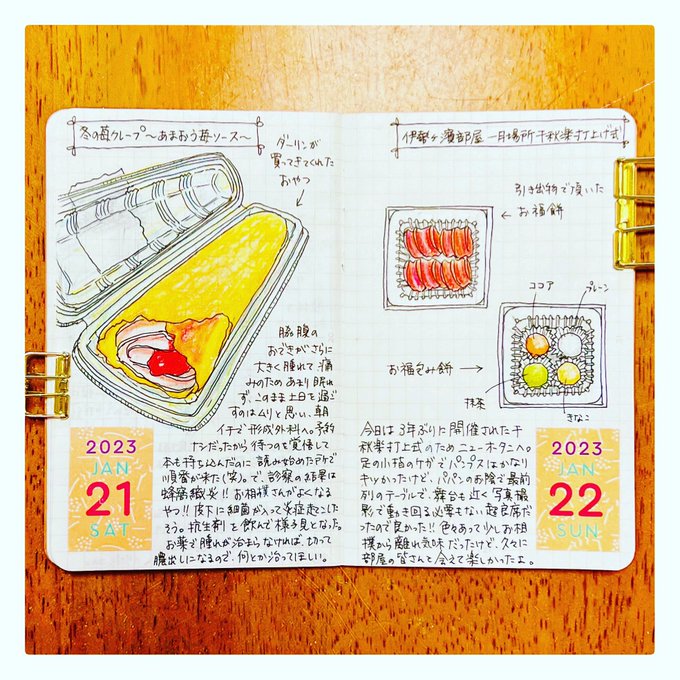 冬の苺クレープ〜あまおう苺ソース〜
ダーリンが
買ってきてくれた
おやつ
脇腹の
おできがさらに
大きく腫れて痛
みのためあまり眠れ
ず、このまま土日を過ごす
のはムリと思い、朝
イチで形成外科へ。予約
ナシだったから待つのを覚悟して
本も持ち込んだのに読み始めたトコで
順番が来た(笑)。で、診察の結果は
蜂窩織炎!!お相撲さんがよくなる
ヤツ!!皮下に細菌が入って炎症起こした
そう。抗生剤を飲んで様子見となった。
お薬で腫れが治まらなければ、切って
膿出しになるので、何とか治ってほしい。
2023
JAN
21
SAT
伊勢ヶ濱部屋 一月場所千秋楽打上げ式
引き出物で頂いた
お福餅
ココア
プレーン
お福包み餅
抹茶
きなこ
今日は3年ぶりに開催された千
秋楽打上式のためニューオータニへ。
足の小指のケガでパンプスはかなり
キツかったけど、パパンのお陰で最前
列のテーブルで、舞台も近く写真撮
影で動き回る必要もない超良席だ
ったので良かった!!色々あって少しお相
撲から離れ気味だったけど、久々に
部屋の皆さんと会えて楽しかったよ。
2023
JAN
22
SUN